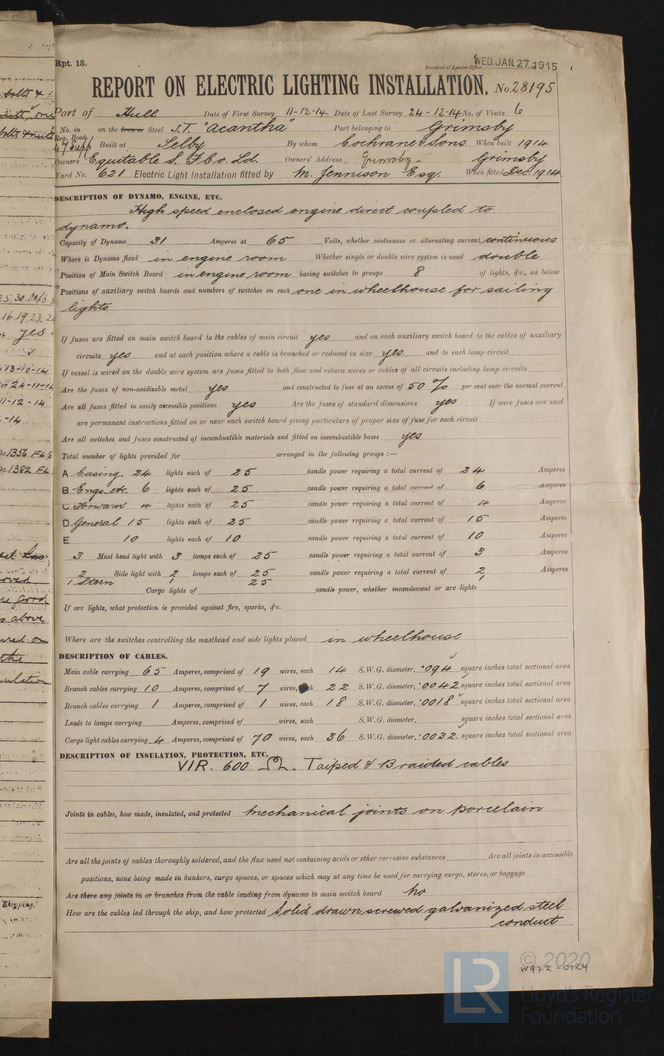 Rpt. 13.
WED. JAN. 27. 1915
REPORT ON ELECTRIC LIGHTING INSTALLATION. No. 28195
Port of Hull Date of First Survey 11-12-14 Date of Last Survey 24-12-14 No. of Visits 6
No. in on the Iron or Steel S.T. "Acantha" Port belonging to Grimsby
Reg. Book
Built at Selby By whom Cochrane & Sons When built 1914
Owners Equitable S. F. Co. Ld. Owners' Address Grimsby Grimsby
Yard No. 621 Electric Light Installation fitted by M. Jennison Esq. When fitted Dec 1914
DESCRIPTION OF DYNAMO, ENGINE, ETC.
High speed enclosed engine direct coupled to
dynamo.
Capacity of Dynamo 31 Amperes at 65 Volts, whether continuous or alternating current continuous
Where is Dynamo fixed in engine room Whether single or double wire system is used double
Position of Main Switch Board in engine room having switches to groups 8 of lights, &c., as below
Positions of auxiliary switch boards and numbers of switches on each one in wheelhouse for sailing
lights
If fuses are fitted on main switch board to the cables of main circuit yes and on each auxiliary switch board to the cables of auxiliary
circuits yes and at each position where a cable is branched or reduced in size yes and to each lamp circuit
If vessel is wired on the double wire system are fuses fitted to both flow and return wires or cables of all circuits including lamp circuits
Are the fuses of non-oxidizable metal yes and constructed to fuse at an excess of 50 % per cent over the normal current
Are all fuses fitted in easily accessible positions yes Are the fuses of standard dimensions yes If wire fuses are used
are permanent instructions fitted on or near each switch board giving particulars of proper size of fuse for each circuit
Are all switches and fuses constructed of incombustible materials and fitted on incombustible bases yes
Total number of lights provided for arranged in the following groups :—
A Casing. 24 lights each of 25 candle power requiring a total current of 24 Amperes
B Engs. etc. 6 lights each of 25 candle power requiring a total current of 6 Amperes
C Forward 4 lights each of 25 candle power requiring a total current of 4 Amperes
D General 15 lights each of 25 candle power requiring a total current of 15 Amperes
E 10 lights each of 10 candle power requiring a total current of 10 Amperes
3 Mast head light with 3 lamps each of 25 candle power requiring a total current of 3 Amperes
2 Side light with 2 lamps each of 25 candle power requiring a total current of 2 Amperes
1 Stern 25 1
Cargo lights of candle power, whether incandescent or arc lights
If arc lights, what protection is provided against fire, sparks, &c.
Where are the switches controlling the masthead and side lights placed in wheelhouse
DESCRIPTION OF CABLES.
Main cable carrying 65 Amperes, comprised of 19 wires, each 14 S.W.G. diameter, .094 square inches total sectional area
Branch cables carrying 10 Amperes, comprised of 7 wires, each 22 S.W.G. diameter, .0042 square inches total sectional area
Branch cables carrying 1 Amperes, comprised of 1 wires, each 18 S.W.G. diameter, .0018 square inches total sectional area
Leads to lamps carrying Amperes, comprised of wires, each S.W.G. diameter, square inches total sectional area
Cargo light cables carrying 4 Amperes, comprised of 70 wires, each 36 S.W.G. diameter, .0032 square inches total sectional area
DESCRIPTION OF INSULATION, PROTECTION, ETC.
VIR. 600 Ω. Taiped & Braided cables
Joints in cables, how made, insulated, and protected Mechanical joints on porcelain
Are all the joints of cables thoroughly soldered, and the flux used not containing acids or other corrosive substances Are all joints in accessible
positions, none being made in bunkers, cargo spaces, or spaces which may at any time be used for carrying cargo, stores, or baggage
Are there any joints in or branches from the cable leading from dynamo to main switch board no
How are the cables led through the ship, and how protected Solid drawn screwed galvanized steel
conduct
© 2020
W972-0124
LR
Lloyd's Register
Foundation